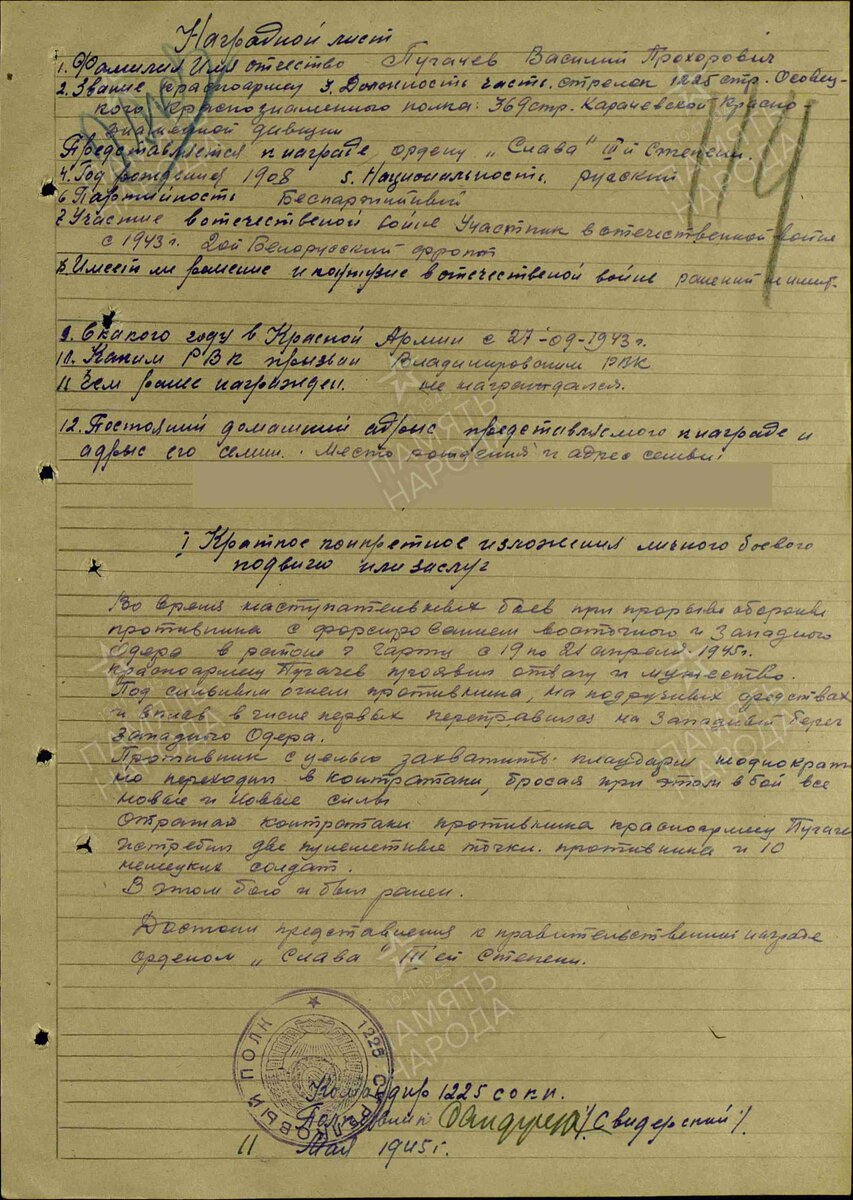 Наградной лист
1. Фамилия Имя отчество Пугачев Василий Прохорович
2. Звание красноармец 3. Должность часть. стрелок 1225 стр. Осовец-
кого Краснознаменного полка: 369 стр. Карачевской Красно-
знаменной дивизии
Представляется к награде, ордену „Слава" III й Степени.
4. Год рождения 1908 5. Национальность. русский
6. Партийность Беспартийный
7. Участие в отечественой войне Участник в отечественной войне
с 1943 г. 2ой Белорусский фронт
8. Имеет ли ранение и контузие в отечественой войне ранений не имеет.
9. С какого году в Красной Армии с 27-09-1943 г.
10. Каким РВК призван Владимировским РВК
11 Чем ранее награжден. не награждался.
12. Постояний домашний адрыс представляемого к награде и
адрыс его семии. Место рождения и адрес семьи:
I Краткое конкретное изложения личного боевого
подвига или заслуг
Во время наступательных боев при прорыве обороны
противника с форсированием восточного и Западного
Одера в районе г Гартц с 19 по 21 апреля 1945 г.
красноармец Пугачев проявил отвагу и мужество.
Под сильным огнем противника, на подручных средствах
и вплавь в числе первых переправился на Западный берег
Западного Одера.
Противник с целью захватить плацдарм неоднократ-
но переходил в контратаки, бросая при этом в бой все
новые и новые силы
Отражая контратаки противника красноармец Пугаче
истребил две пулеметные точки. противника и 10
немецких солдат.
В этом бою и был ранен.
Достоин представления к правительственной награде
орденом „Слава" III ей Степени.
1225 СТРЕЛКОВЫЙ ПОЛК
Командир 1225 сокп.
Полковник /Свидерский/.
11 Май 1945 г.
114
ПАМЯТЬ НАРОДА
1941-1945